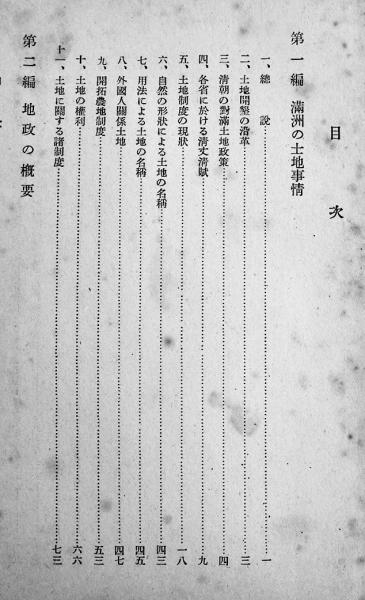 目次
第一編 滿洲の土地事情
一、總說……一
二、土地開墾の沿革……三
三、清朝の對滿土地政策……四
四、各省に於ける清丈清賦……九
五、土地制度の現狀……一八
六、自然の形狀による土地の名稱……四三
七、用法による土地の名稱……四五
八、外國人關係土地……四七
九、開拓農地制度……五三
十、土地の權利……六六
十一、土地に關する諸制度……七三
第二編 地政の概要